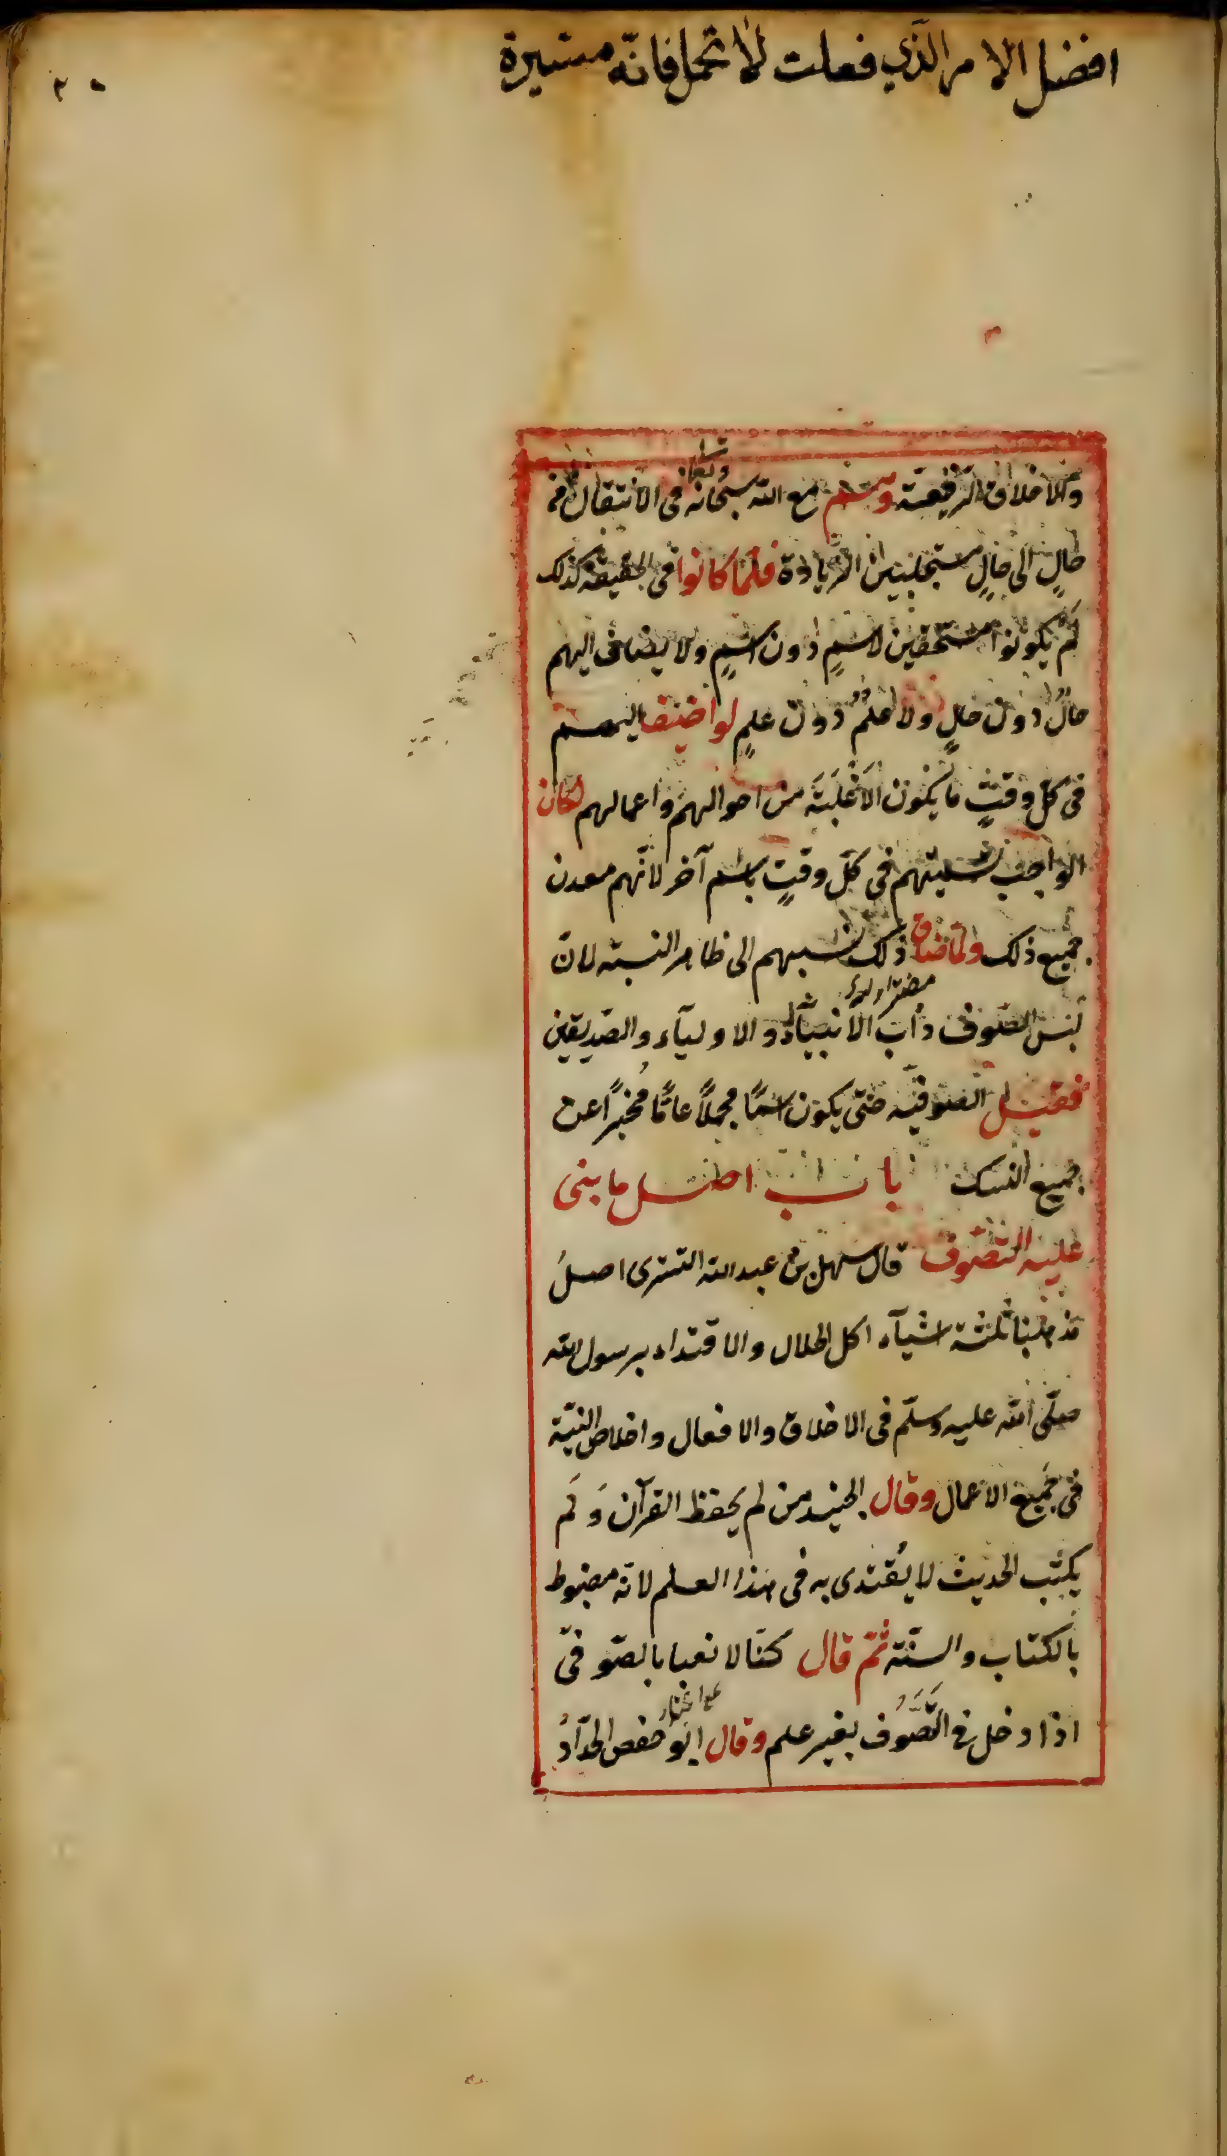 افضل الامر الذي فعلت
والاخلاق الرفيعة وهم مع الله سبحانه وتعالى فى الانتقال من
حالٍ الى حالٍ مستجلبين الزيادة فلما كانوا فى الحقيقة كذلك
لَم يكونوا مستحقين لاسمٍ دون اسمٍ ولا يضاف اليهم
حالٌ دون حالٍ ولا علمٌ دون علمٍ لو اضيف اليهم
فى كلّ وقتٍ ما يكون الاَغلَبَ من احوالهم واعمالهم لكان
الواجب تسميتهم فى كلّ وقتٍ باسم آخر لانّهم معدن
جميع ذلك ولمّا ضاق ذلك نسبهم الى ظاهر اللبسة لانّ
لبس الصّوف دأب الاَنبيآء والاوليآء والصّديقين
فقيل الصّوفيّه حتّى يكون اسمًا مجملاً عامًّا مُخبرًا عن
جميع النسك باب اصل ما بنى
عليه التصّوف قال سهل بن عبد الله التسترى اصلُ
مذهبنا ثلثة اشيآء اكل الحلال والاقتداء برسول الله
صلّى الله عليه وسلّم فى الاخلاق والافعال واخلاص النيّة
فى جميع الاعمال وقال الجنيد من لم يحفظ القرآن وَلَم
يكتُب الحديث لا يُقتدى به فى هذا العلم لانّه مضبوط
بالكتاب والسنّة ثمّ قال كنّا لا نعبا بالصّوفىّ
اذا دخل فى التَّصَوُّف بغير علم وقال ابو حفص الحدّادُ